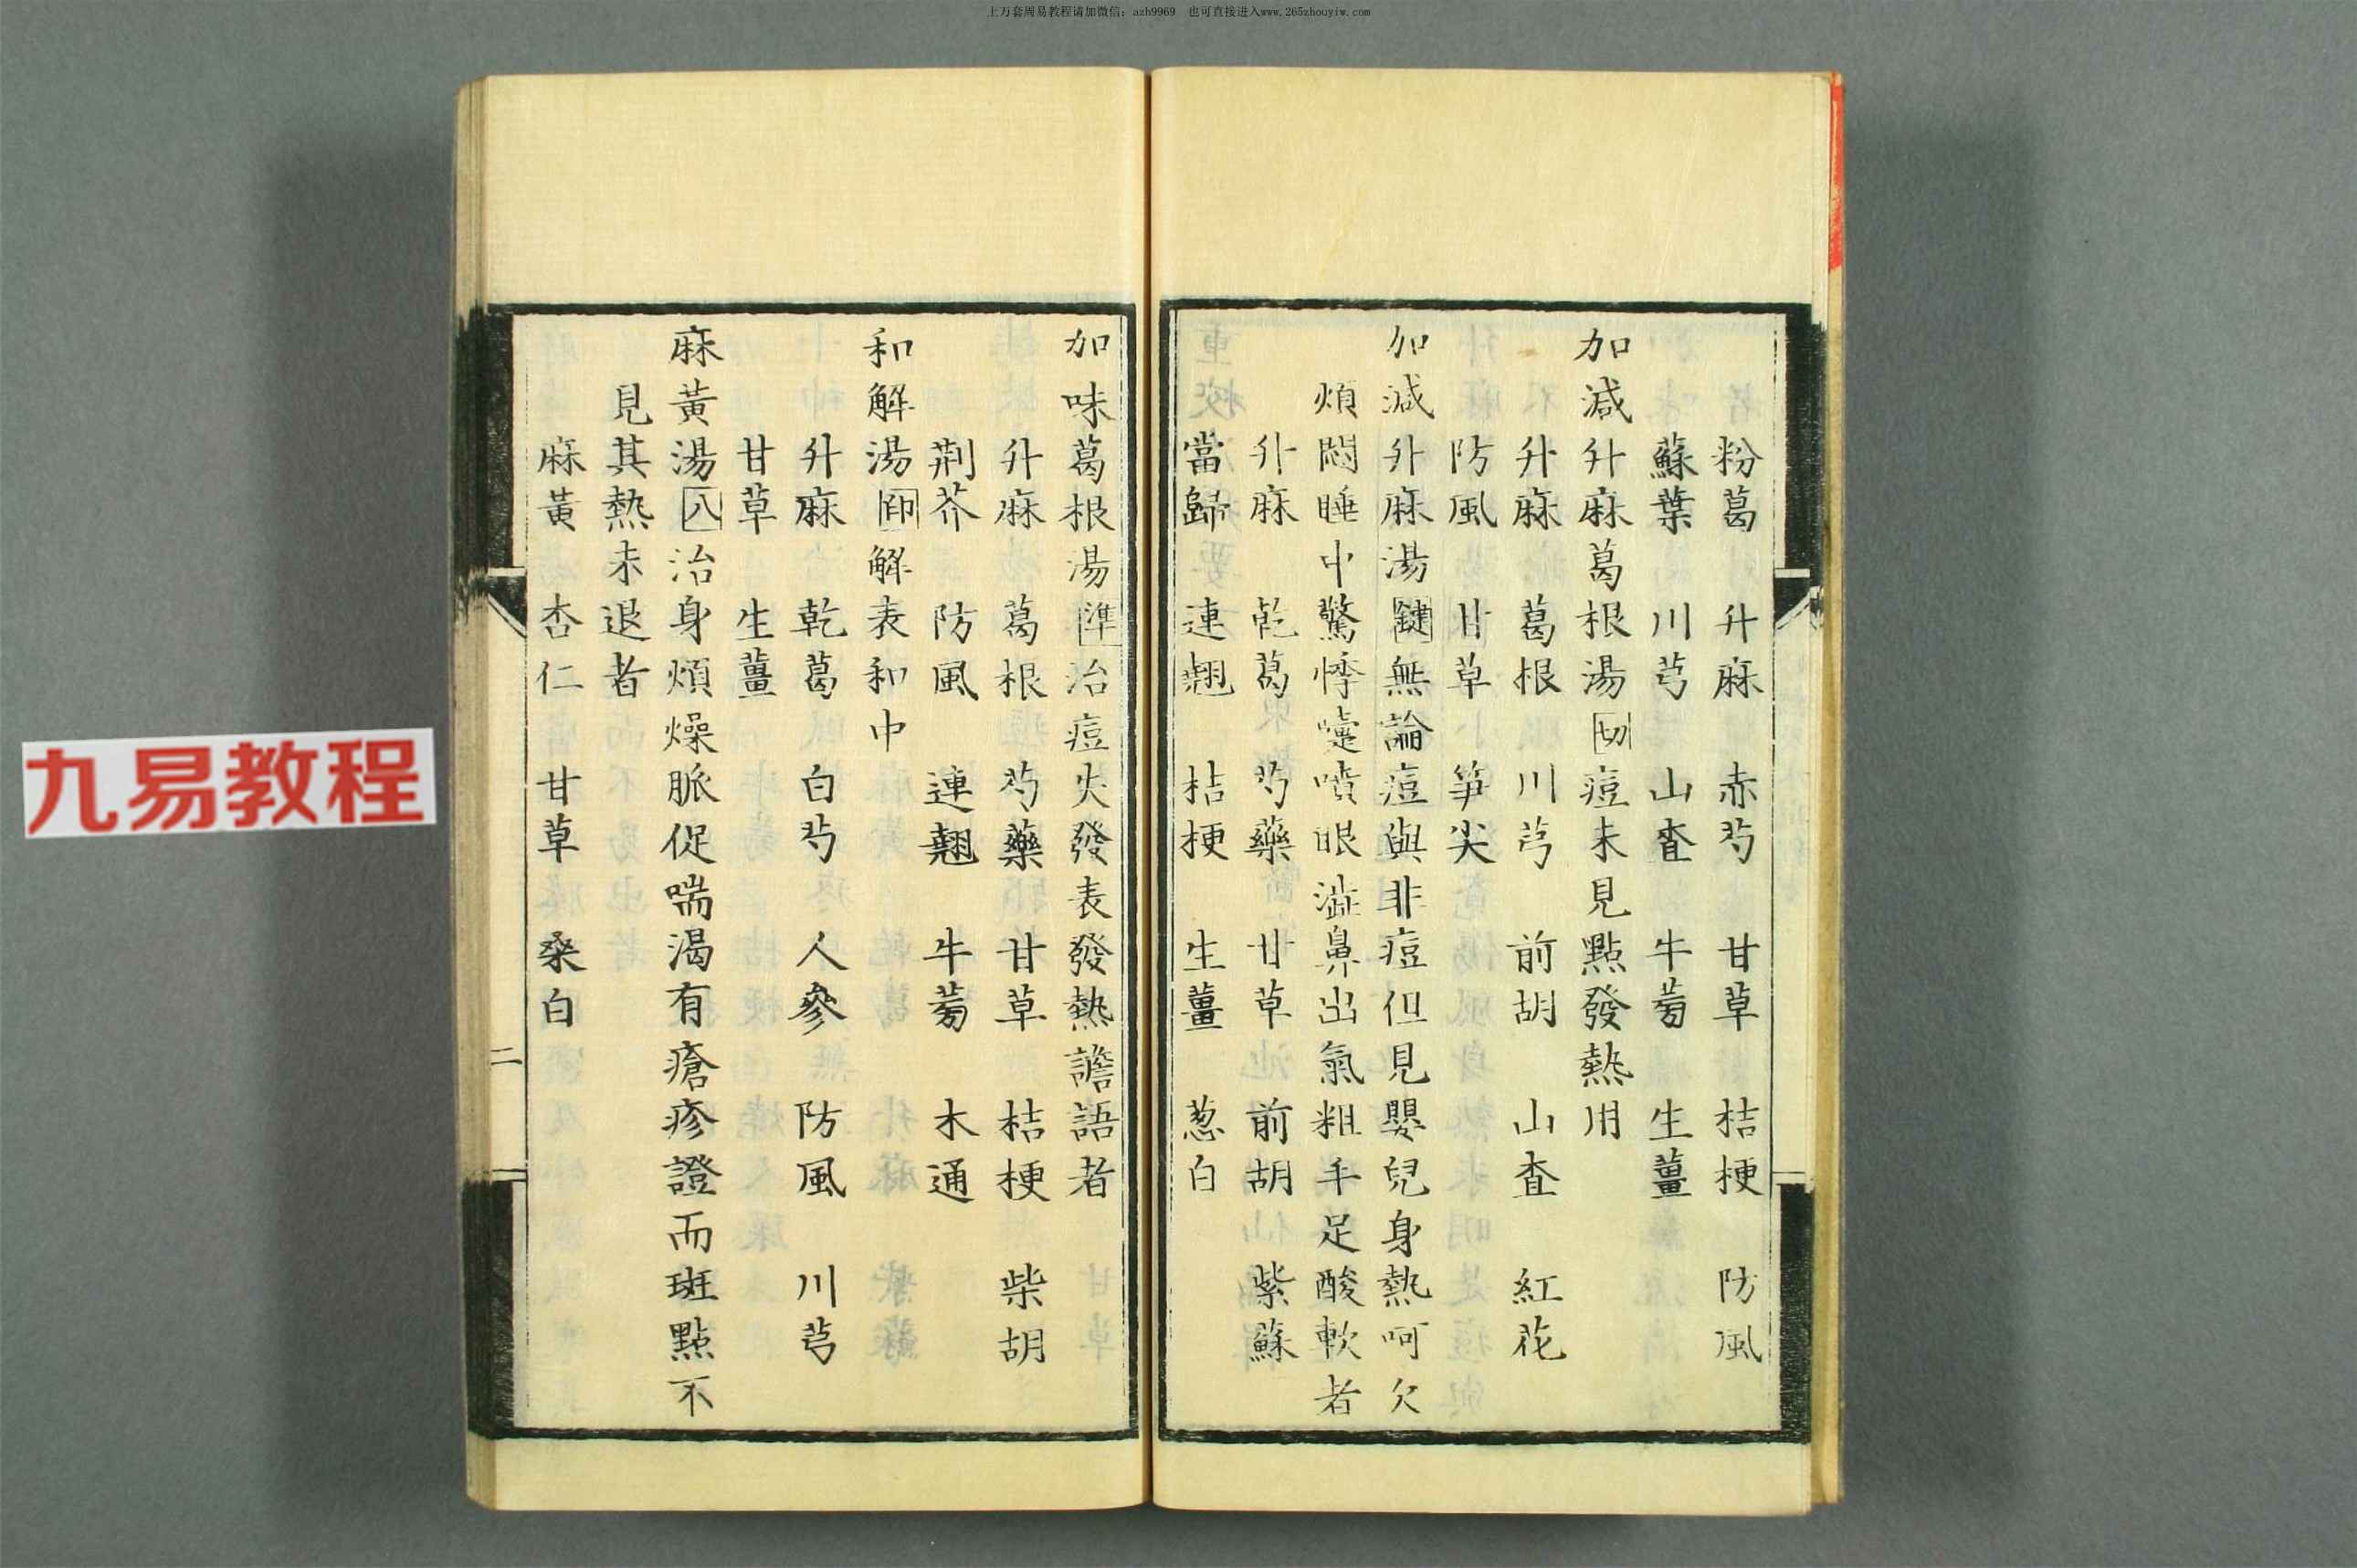 上万套周易教程请加微信：azh9969　也可直接进入www.265zhouyiw.com
粉葛　升麻　赤芍　甘草　桔梗　防風
蘇葉　川芎　山查　牛蒡　生薑
加減升麻葛根湯切痘未見點發熱用
升麻　葛根　川芎　前胡　山查　紅花
防風　甘草　笋尖
加減升麻湯鍵無論痘與非痘但見嬰兒身熱呵欠
煩悶睡中驚悸嚏噴眼澁鼻出氣粗手足酸軟者
升麻　乾葛　芍藥　甘草　前胡　紫蘇
當歸　連翹　桔梗　生薑　葱白
加味葛根湯準治痘失發表發熱譫語者
升麻　葛根　芍藥　甘草　桔梗　柴胡
荆芥　防風　連翹　牛蒡　木通
和解湯印解表和中
升麻　乾葛　白芍　人參　防風　川芎
甘草　生薑
麻黃湯八治身煩燥脈促喘渴有瘡疹證而斑點不
見其熱未退者
麻黃　杏仁　甘草　桑白
二
九易教程